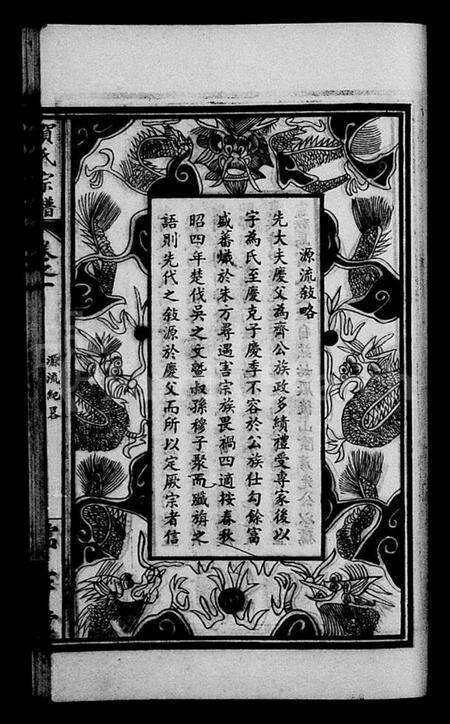 源流敍略
先大夫慶父為齊公族政多績禮受專家後以
字為氏至慶克子慶季不容於公族仕勾餘富
盛蕃蟻於朱方尋遇害宗族畏禍四適按春秋
昭四年楚伐吳之文暨叔孫穆子聚而殲旃之
語則先代之敍源於慶父而所以定厥宗者信
賀氏宗譜
卷之一
源流紀畧